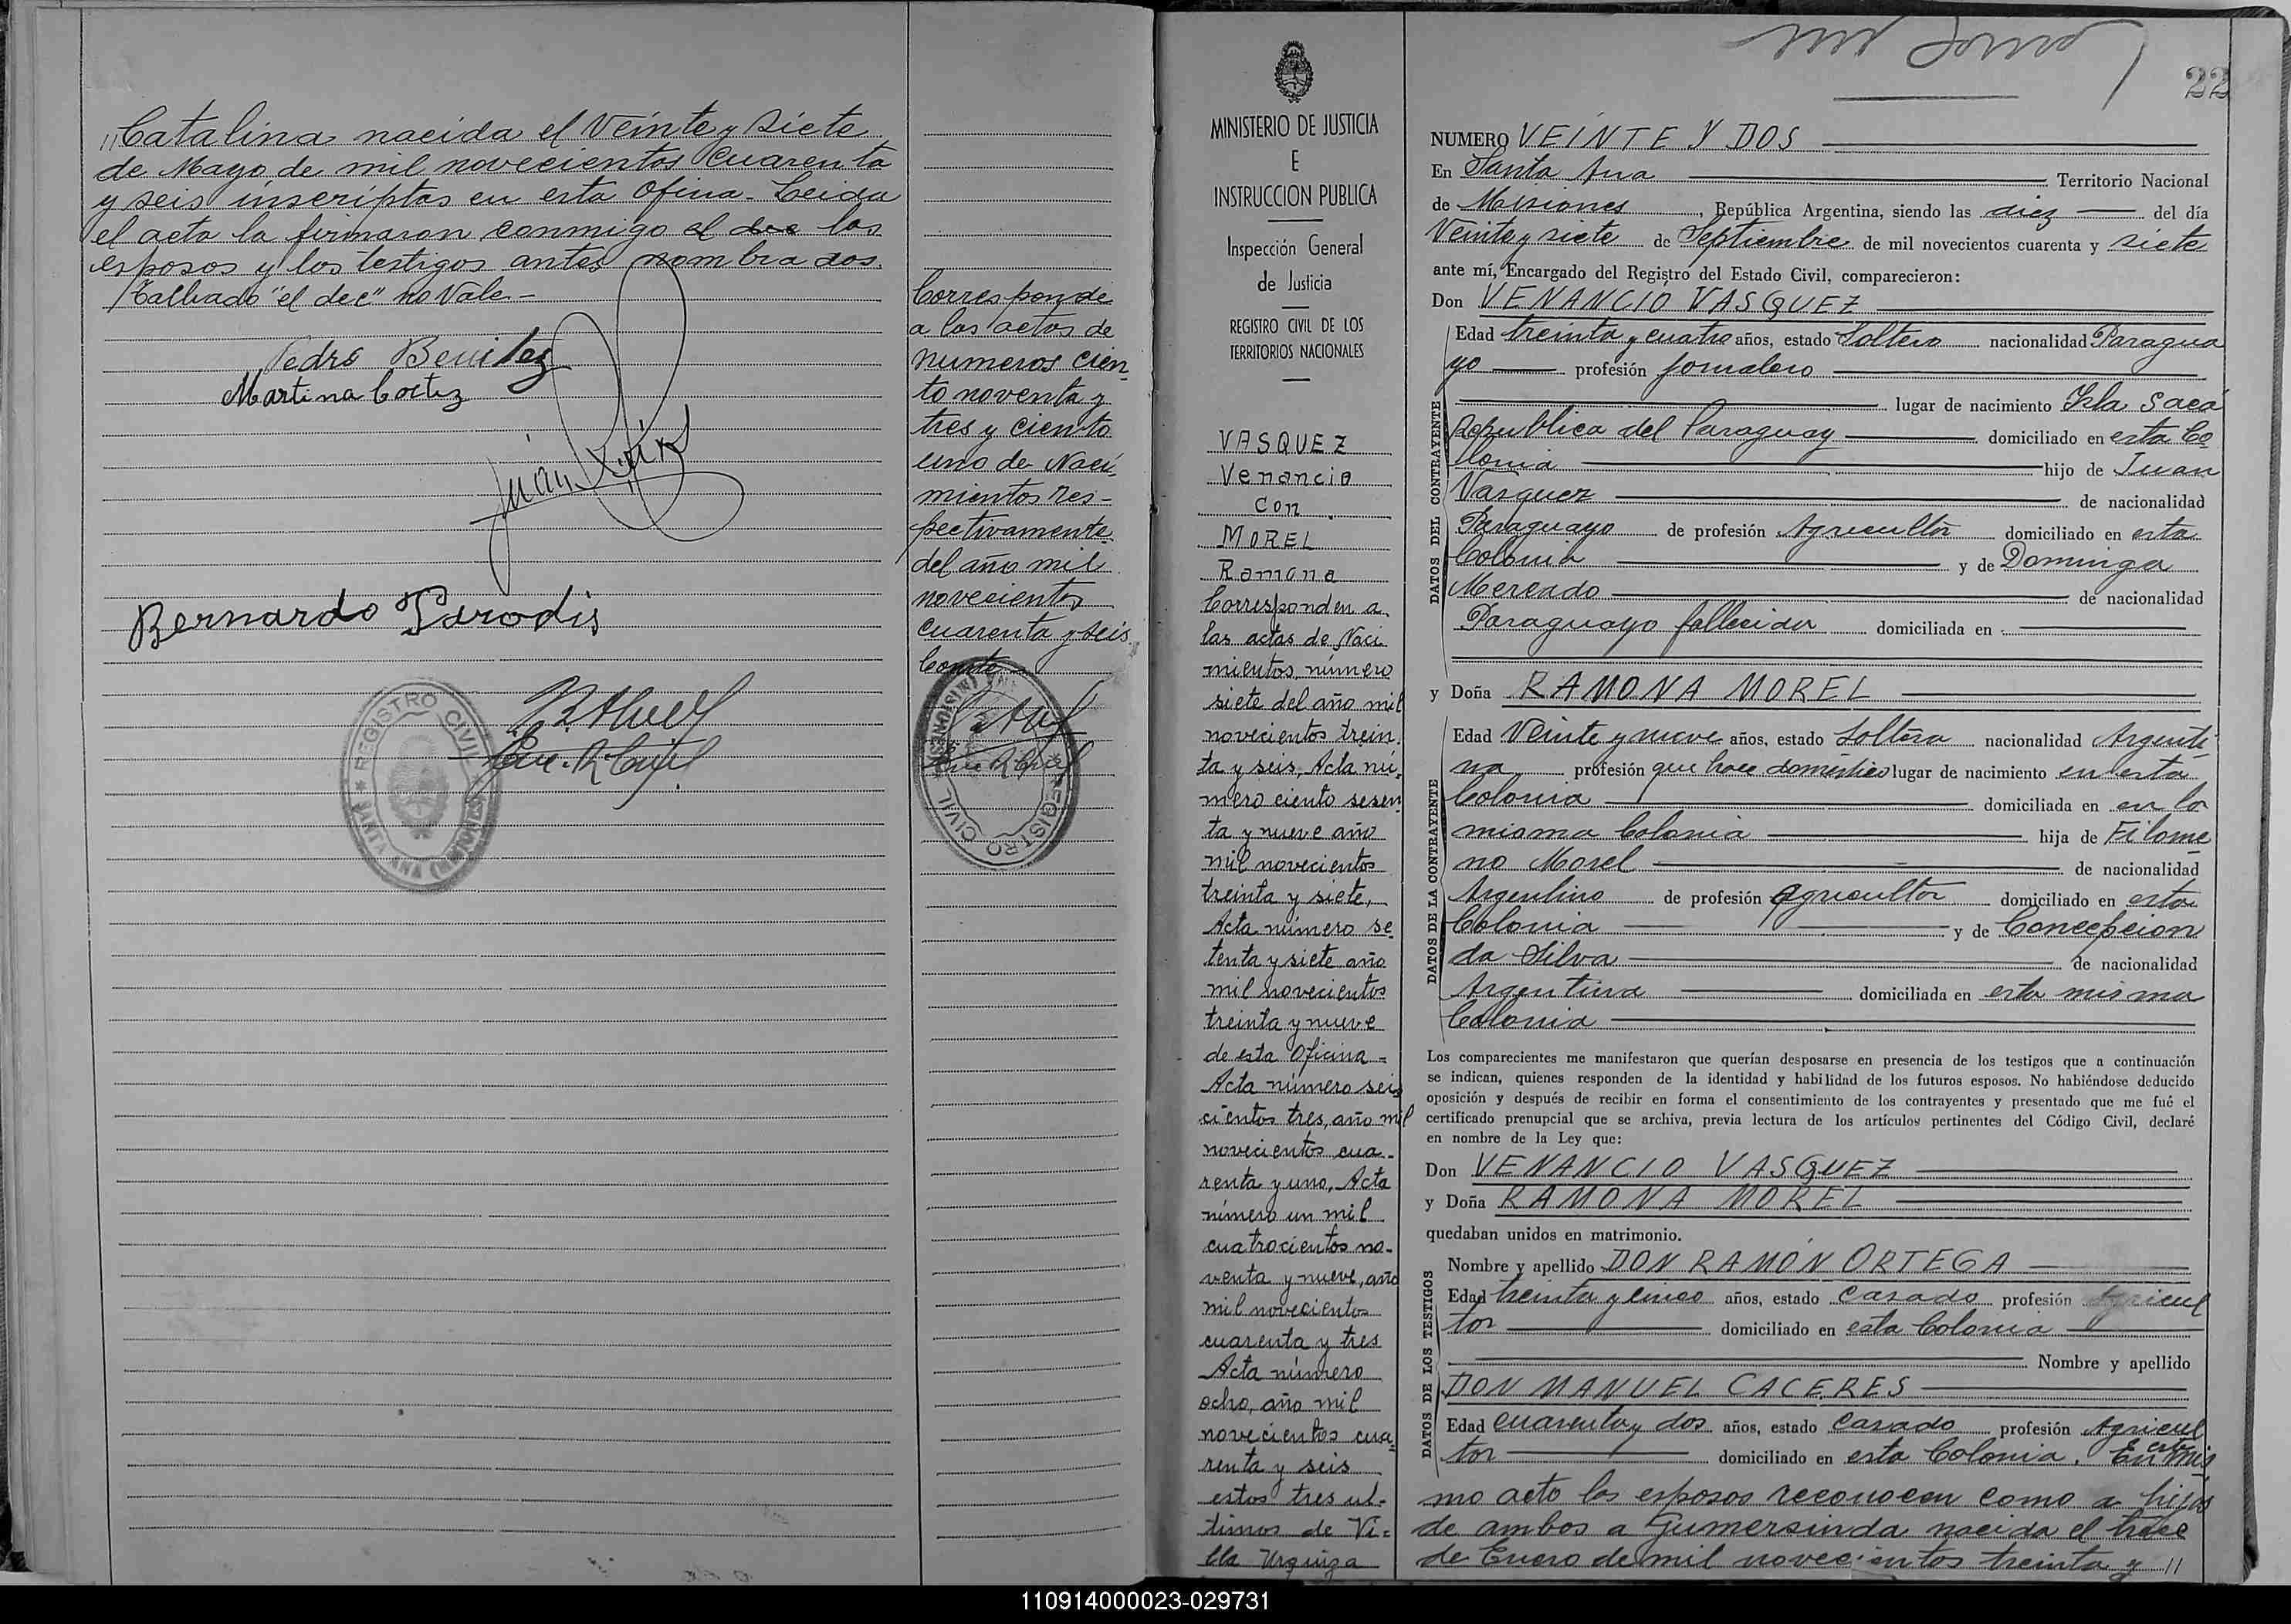 "Catalina nacida el Veinte y Siete
de Mayo de mil novecientos Cuarenta
y seis inscriptas en esta Ofina - Leida
el acta la firmaron conmigo el dee los
esposos y los testigos antes nombrados.
Talhado "el dee" no Vale -
Pedro Benitez
Martina Cortez
Juan
Bernardo Parodis
REGISTRO CIVIL
SANTA ANA (MISIONES)
Corresponde
a las actas de
numeros cien
to noventa y
tres y ciento
uno de Naci-
mientos res-
pectivamente
del año mil
novecientos
cuarenta y seis
Conste
REGISTRO CIVIL
MINISTERIO DE JUSTICIA
E
INSTRUCCION PUBLICA
Inspección General
de Justicia
REGISTRO CIVIL DE LOS
TERRITORIOS NACIONALES
VASQUEZ
Venancio
con
MOREL
Ramona
Corresponden a
las actas de Naci
mientos, número
siete del año mil
novecientos trein
ta y seis, Acta nu-
mero ciento sesen
ta y nueve año
mil novecientos
treinta y siete,
Acta número se
tenta y siete año
mil novecientos
treinta y nueve
de esta Oficina -
Acta número seis
cientos tres, año mil
novecientos cua-
renta y uno, Acta
número un mil
cuatrocientos no-
venta y nueve, año
mil novecientos
cuarenta y tres
Acta número
ocho, año mil
novecientos cua
renta y seis
estos tres ul-
timos de Vi-
lla Urquiza
22
NUMERO VEINTE Y DOS
En Santa Ana Territorio Nacional
de Misiones, República Argentina, siendo las diez del día
Veinte y siete de Septiembre de mil novecientos cuarenta y siete
ante mí, Encargado del Registro del Estado Civil, comparecieron:
Don VENANCIO VASQUEZ
DATOS DEL CONTRAYENTE
Edad treinta y cuatro años, estado Soltero nacionalidad Paragua
yo profesión jornalero
lugar de nacimiento Isla Sacá
República del Paraguay domiciliado en esta Co
lonia hijo de Juan
Vasquez de nacionalidad
Paraguayo de profesión Agricultor domiciliado en esta
Colonia y de Dominga
Mercado de nacionalidad
Paraguayo fallecida domiciliada en
y Doña RAMONA MOREL
DATOS DE LA CONTRAYENTE
Edad Veinte y nueve años, estado Soltera nacionalidad Argenti
na profesión que hace domestico lugar de nacimiento en esta
Colonia domiciliada en en la
misma Colonia hija de Filome
no Morel de nacionalidad
Argentino de profesión Agricultor domiciliado en esta
Colonia y de Concepcion
da Silva de nacionalidad
Argentina domiciliada en esta misma
Colonia
Los comparecientes me manifestaron que querían desposarse en presencia de los testigos que a continuación
se indican, quienes responden de la identidad y habilidad de los futuros esposos. No habiéndose deducido
oposición y después de recibir en forma el consentimiento de los contrayentes y presentado que me fué el
certificado prenupcial que se archiva, previa lectura de los artículos pertinentes del Código Civil, declaré
en nombre de la Ley que:
Don VENANCIO VASQUEZ
y Doña RAMONA MOREL
quedaban unidos en matrimonio.
DATOS DE LOS TESTIGOS
Nombre y apellido DON RAMÓN ORTEGA
Edad treinta y cinco años, estado Casado profesión Agricul
tor domiciliado en esta Colonia
Nombre y apellido
DON MANUEL CACERES
Edad cuarenta y dos años, estado Casado profesión Agricul
tor domiciliado en esta Colonia. En este mis
mo acto los esposos reconocen como a hijos
de ambos a Gumersinda nacida el trece
de Enero de mil novecientos treinta y "
110914000023-029731